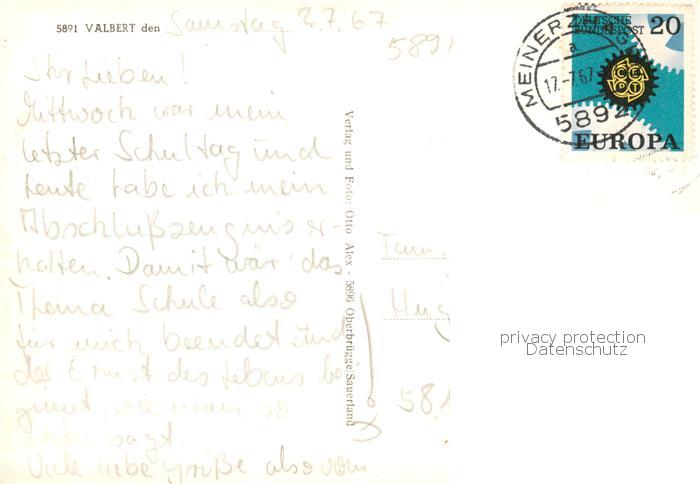 5891 VALBERT den Samstag 2.7.67
Ihr Lieben!
Mittwoch war mein
letzter Schultag und
heute habe ich mein
Abschlußzeugnis er-
halten. Damit wär das
Thema Schule also
für mich beendet und
der Ernst des Lebens be
ginnt, wie man so
schön sagt.
Viele, liebe Grüße also vom
Verlag und Foto: Otto Alex · 5896 Oberbrügge/Sauerland
589
DEUTSCHE
BUNDESPOST 20
CEPT
EUROPA
MEINERZ
a
17.-7.67
5892
Fam.
58
privacy protection
Datenschutz